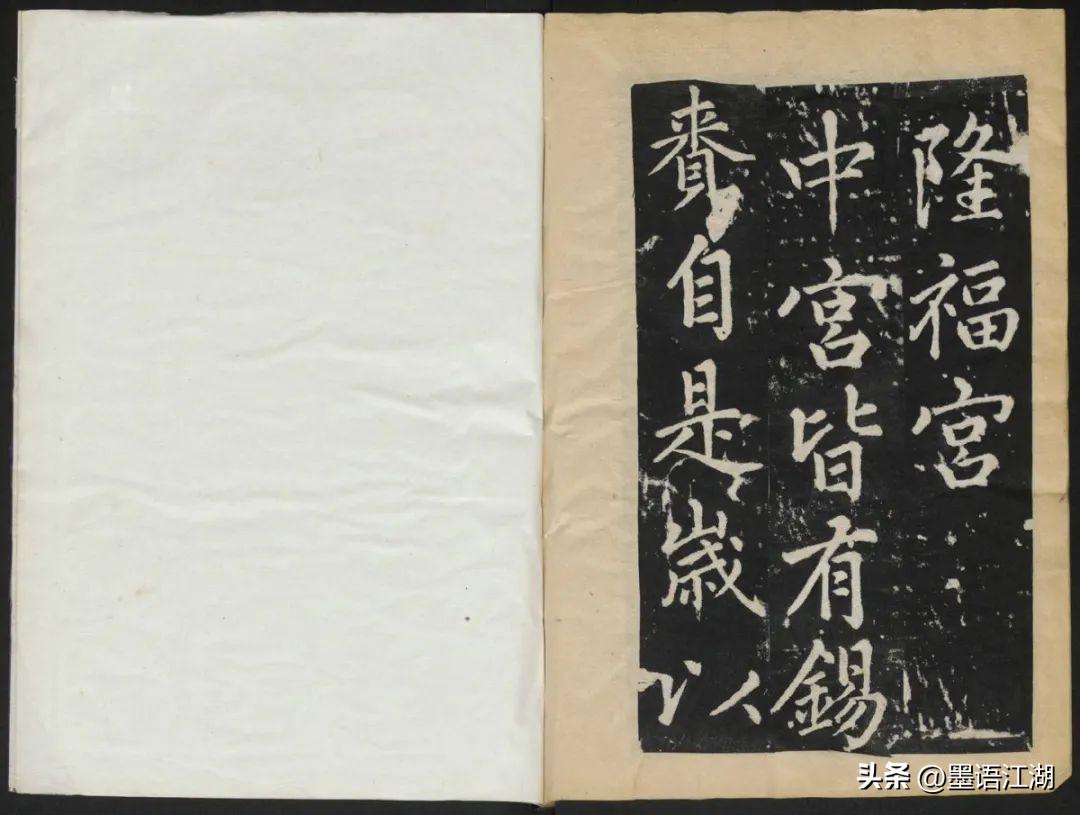 隆福宮
中宮皆有錫
賚自是歲以
头条 @墨语江湖